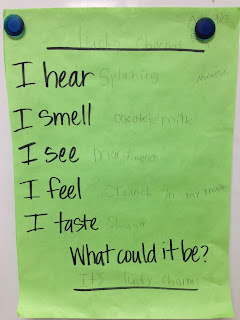 lucky charms
I hear Splashing
I smell chocolate milk
I see
I feel Crunch in my mouth
I taste Sugar
What could it be?
It's lucky charms